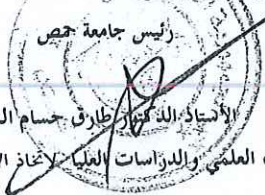 رئيس جامعة حمص
الأستاذ الدكتور طارق حسام ال
العلمي والدراسات العليا لاتخاذ ال